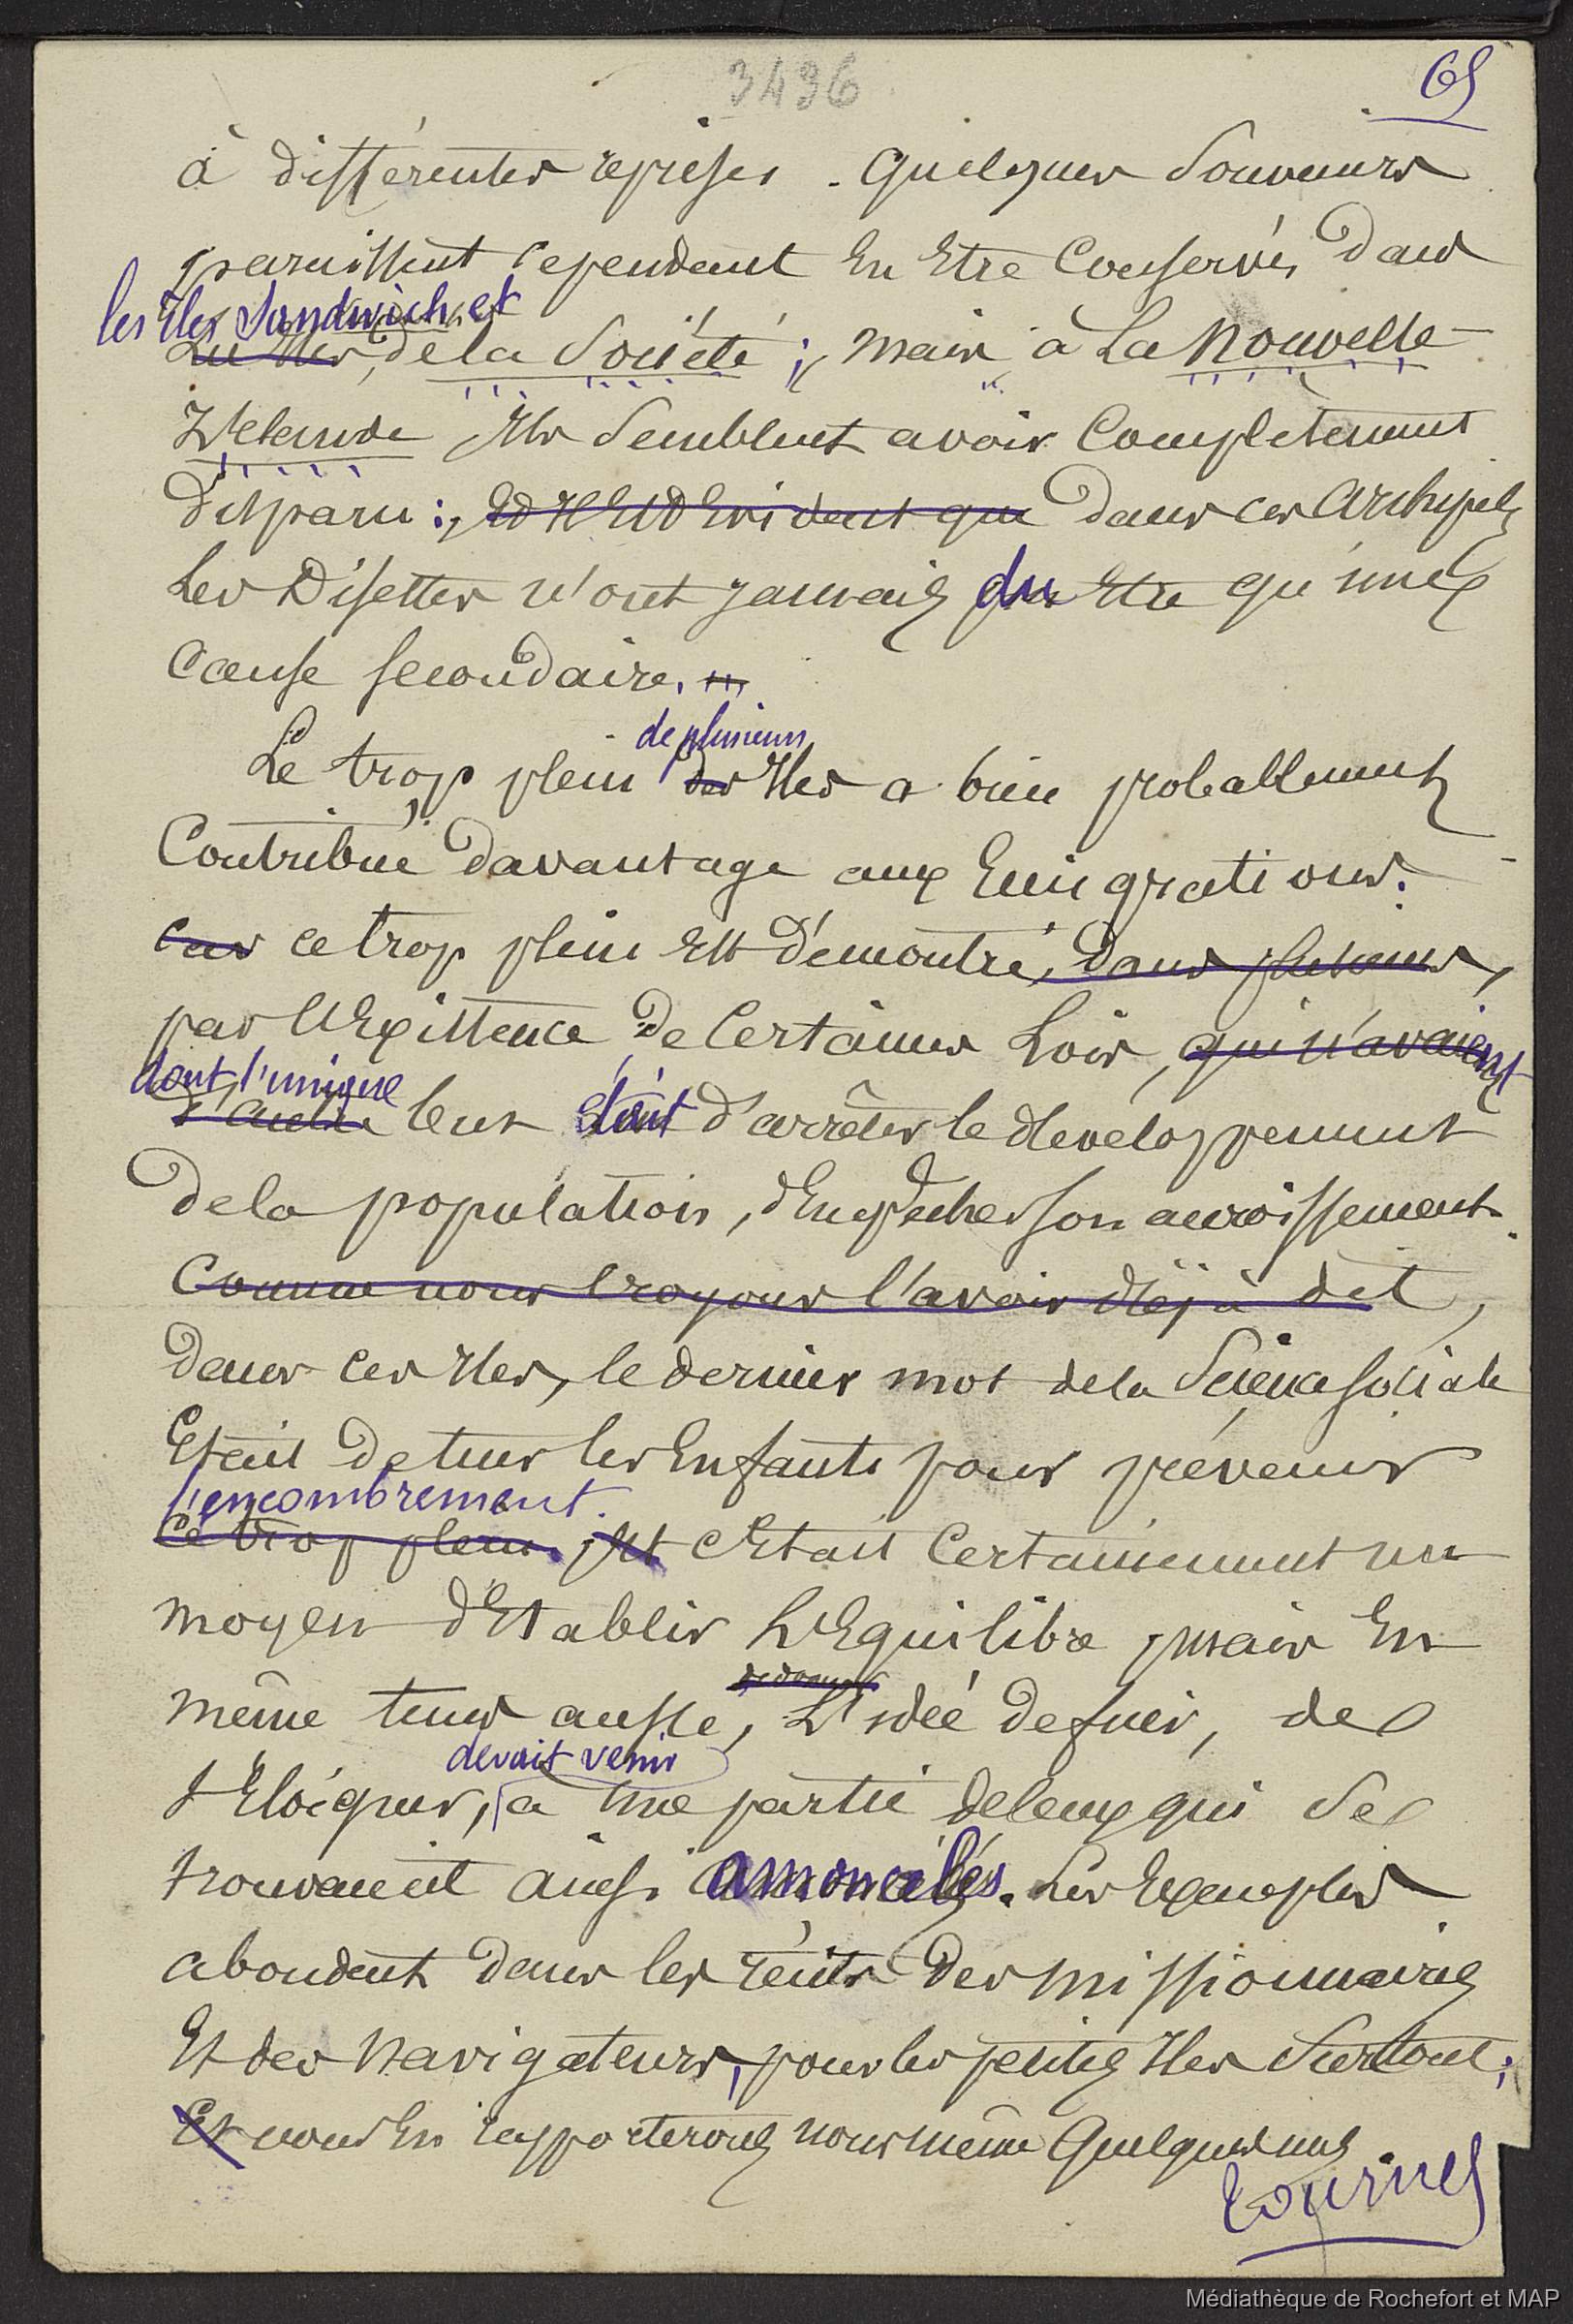 3496
65
à différentes reprises. Quelques Souvenirs
paraissent cependant En Etre Conservés dans
les Iles Sandwich et
Les Iles, de la Société ; mais à La Nouvelle-
Zélande Ils Semblent avoir Complètement
disparu :, Et Il Est Evident que dans ces Archipels
Les Disettes n'ont jamais du Etre qu'une
Cause secondaire.
de plusieurs
Le trop plein des Iles a bien probablement
Contribué davantage aux Emigrations.
car ce trop plein Est Démontré, dans plusieurs,
par l'Existence de Certaines Lois, qui n'avaient
dont l'unique
d'autre but était d'arrêter le développement
de la population, d'Empêcher son accroissement.
Comme nous croyons l'avoir déjà dit,
dans ces Iles, le dernier mot de la Science sociale
Etait de tuer les Enfants pour prévenir
l'encombrement.
Ce trop plein. Et C'Etait Certainement un
moyen d'Etablir L'Equilibre mais En
même tems aussi, L'idée de fuir, de
devait venir
s'Eloigner, a une partie de ceux qui Se
trouvaient ainsi amoncelés. Les Exemples
abondent dans les récits des missionnaires
Et des Navigateurs, pour les petites Iles Surtout ;
Et nous En rapporterons nous même Quelques uns
tournes
Médiathèque de Rochefort et MAP